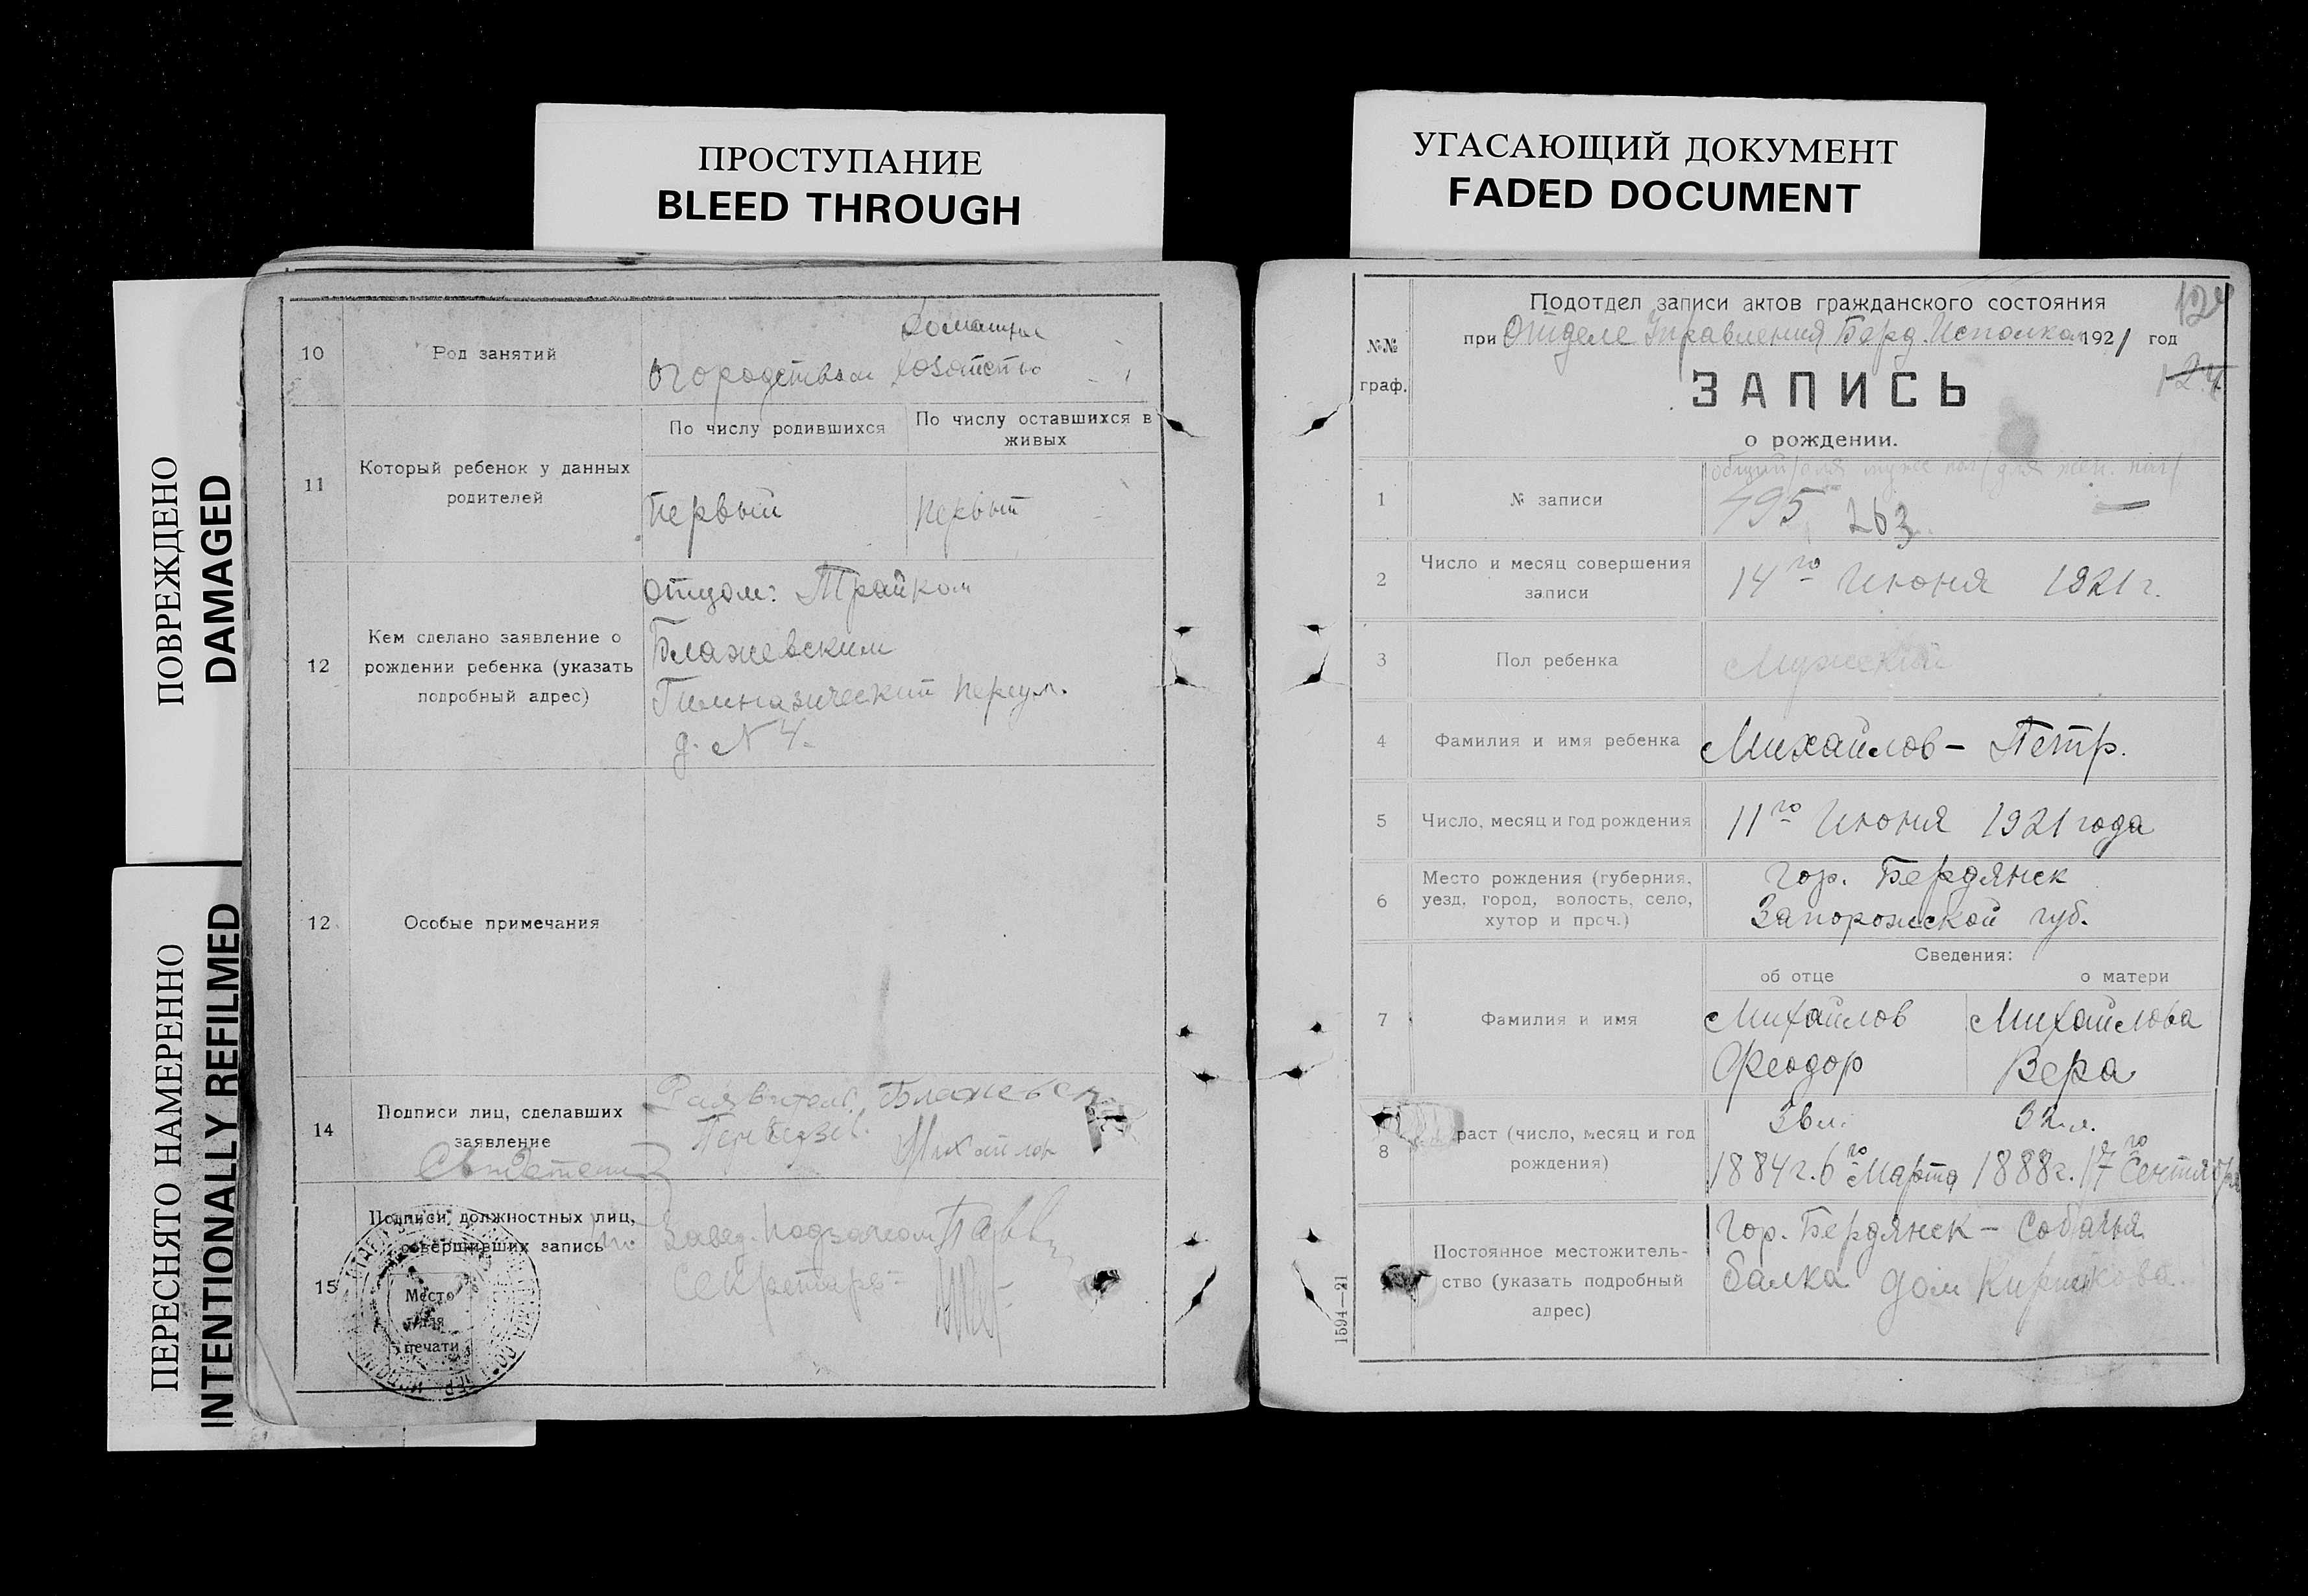 ПРОСТУПАНИЕ
BLEED THROUGH
УГАСАЮЩИЙ ДОКУМЕНТ
FADED DOCUMENT
ПОВРЕЖДЕНО
DAMAGED
ПЕРЕСНЯТО НАМЕРЕННО
INTENTIONALLY REFILMED
10
Род занятий
огородством
хозяйство
11
Который ребенок у данных
родителей
По числу родившихся
По числу оставшихся в
живых
Первый
первый
12
Кем сделано заявление о
рождении ребенка (указать
подробный адрес)
отцом: Трайком
Блажевским
Гимназический переул.
д. № 4.
12
Особые примечания
14
Подписи лиц, сделавших
заявление
Михайлов
15
Подписи должностных лиц,
совершивших запись
Место
для
печати
Секретарь
№№
граф.
Подотдел записи актов гражданского состояния
при Отделе Управления Берд. Исполкома 1921 год
124
ЗАПИСЬ
о рождении.
1
№ записи
495 263 —
2
Число и месяц совершения
записи
14го Июня 1921 г.
3
Пол ребенка
Мужской
4
Фамилия и имя ребенка
Михайлов – Петр.
5
Число, месяц и год рождения
11го Июня 1921 года
6
Место рождения (губерния,
уезд, город, волость, село,
хутор и проч.)
Гор. Бердянск
Запорожской губ.
Сведения:
об отце
о матери
7
Фамилия и имя
Михайлов
Феодор
Михайлова
Вера
8
раст (число, месяц и год
рождения)
1884 г. 6го Марта
1888 г. 17го Сентября
Постоянное местожитель-
ство (указать подробный
адрес)
Гор. Бердянск – Собачья
балка дом
1594—21